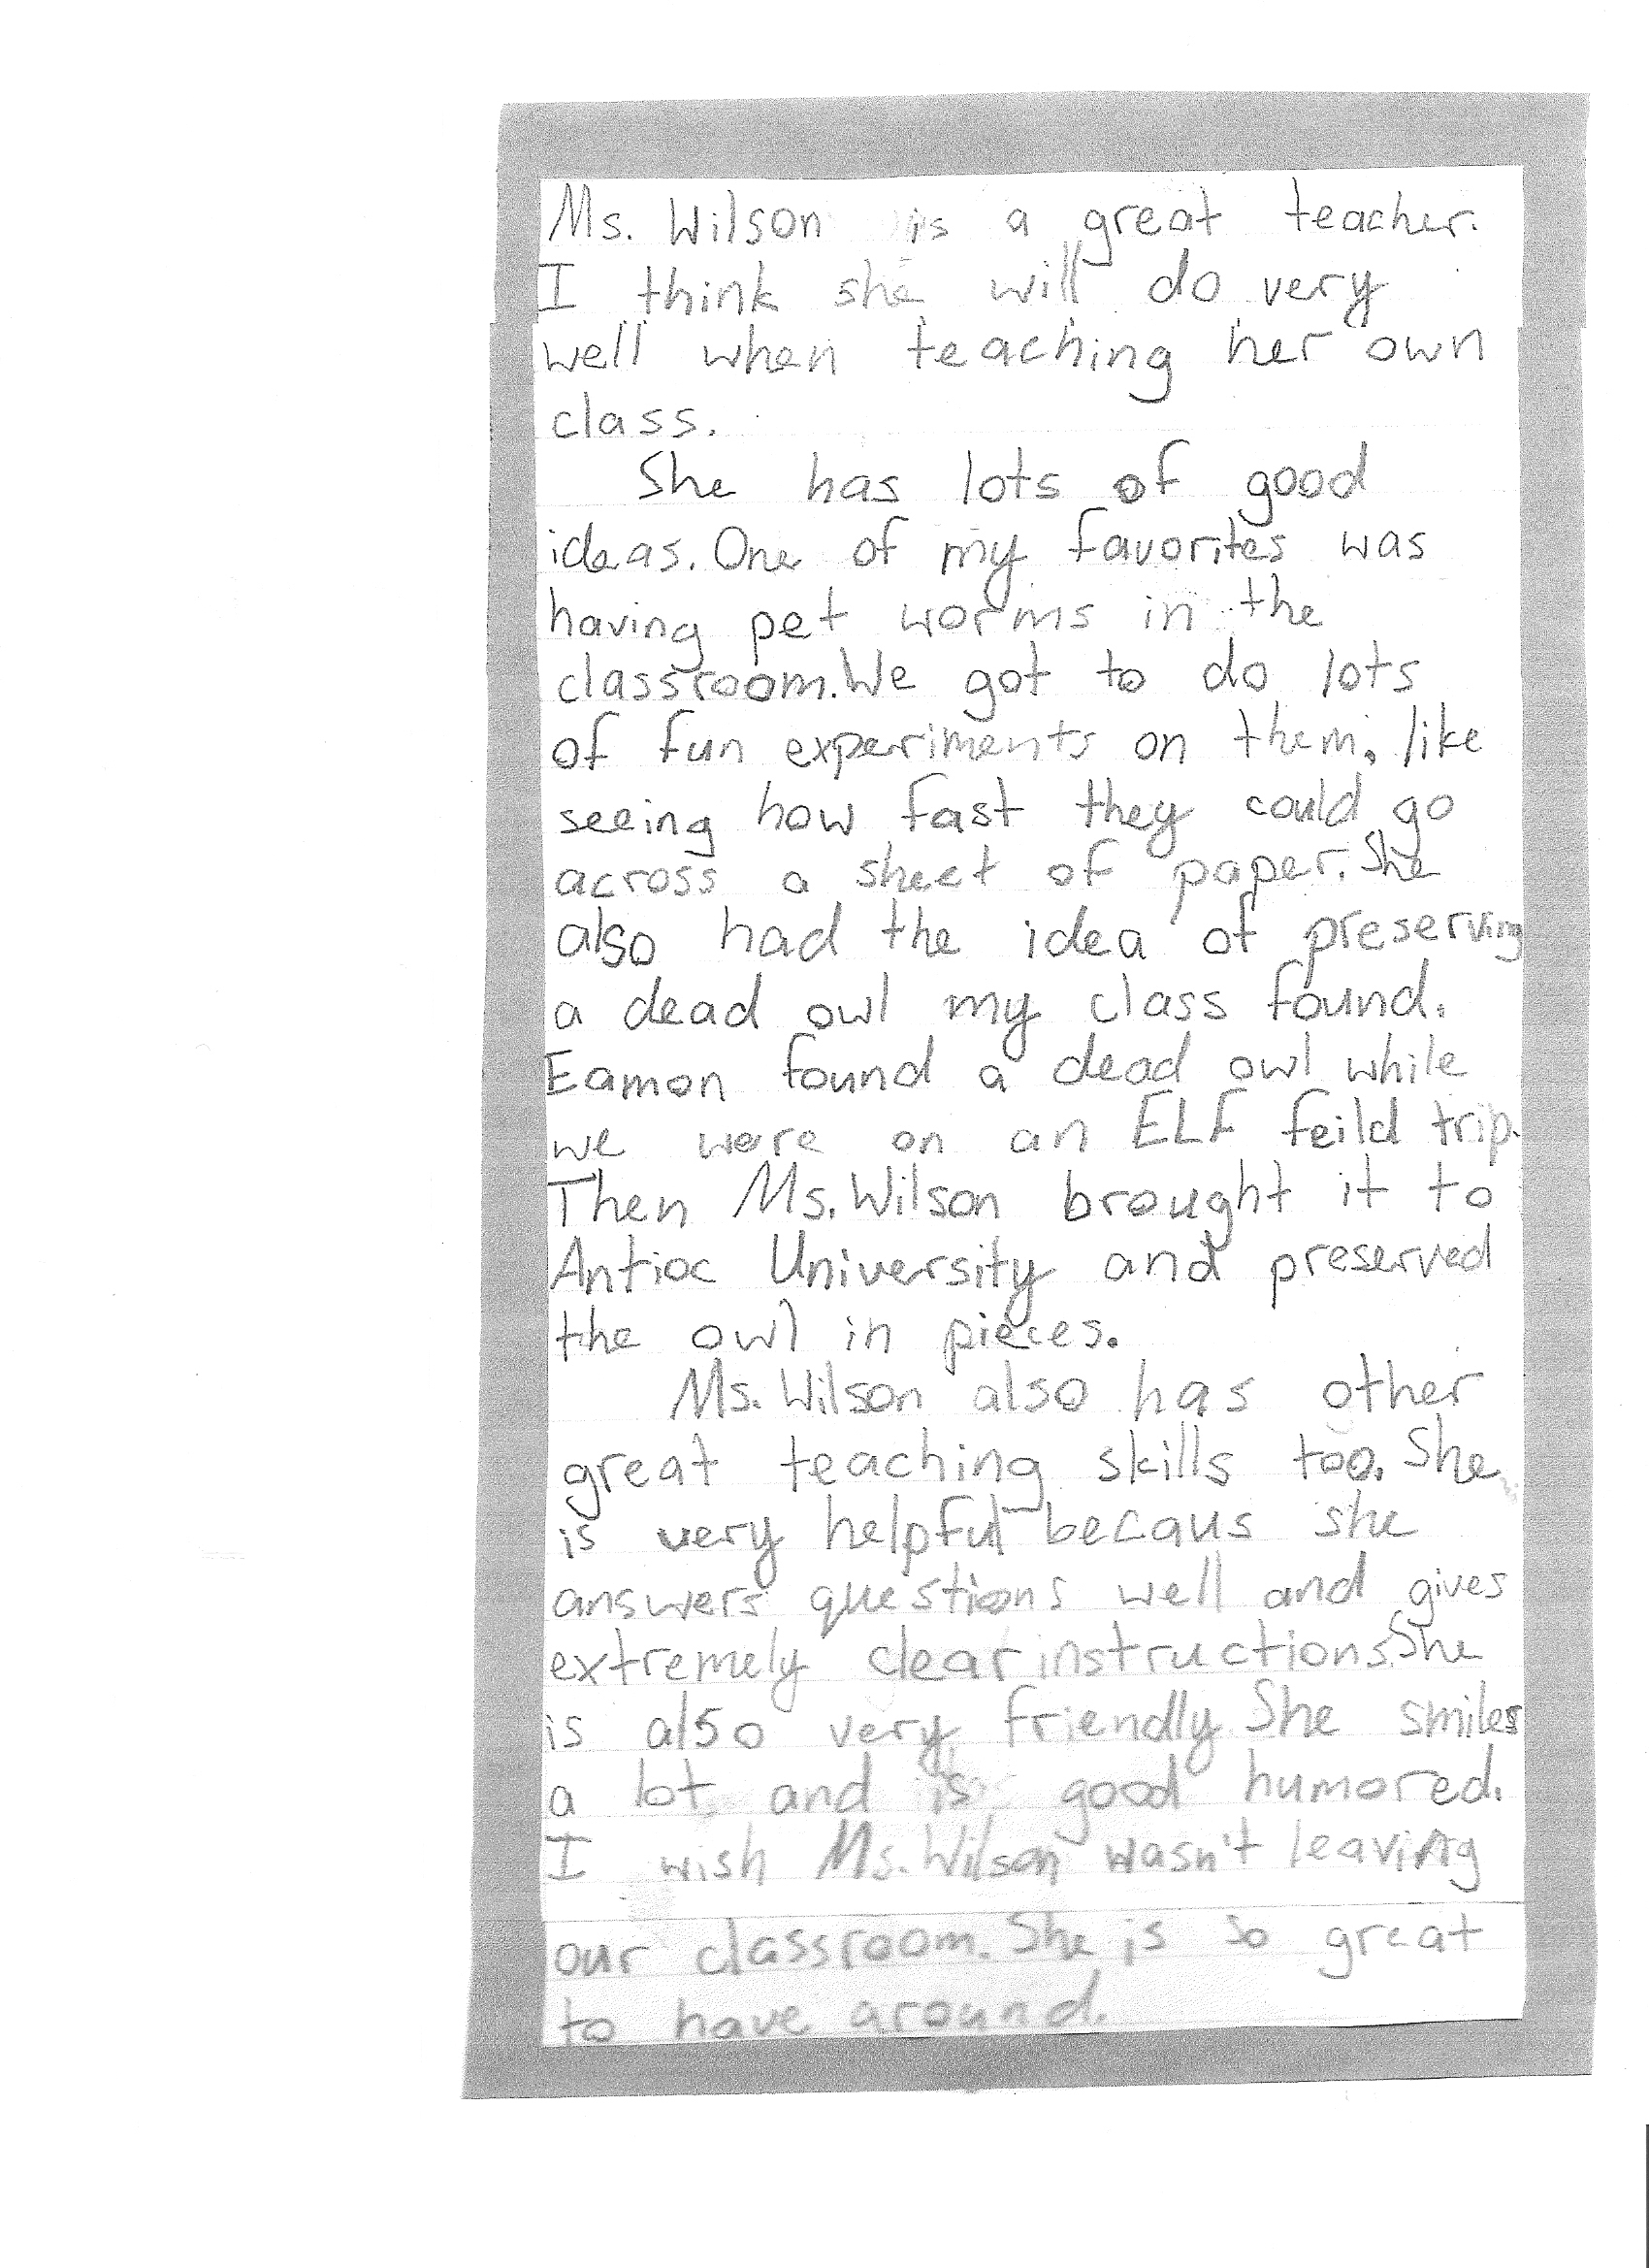 Ms. Wilson is a great teacher.
I think she will do very
well when teaching her own
class.
She has lots of good
ideas. One of my favorites was
having pet worms in the
classroom. We got to do lots
of fun experiments on them, like
seeing how fast they could go
across a sheet of paper. She
also had the idea of preserving
a dead owl my class found.
Eamon found a dead owl while
we were on an ELF feild trip.
Then Ms. Wilson brought it to
Antioc University and preserved
the owl in pieces.
Ms. Wilson also has other
great teaching skills too. She
is very helpful becaus she
answers questions well and gives
extremely clear instructions. She
is also very friendly She smiles
a lot and is good humored.
I wish Ms. Wilson wasn't leaving
our classroom. She is so great
to have around.